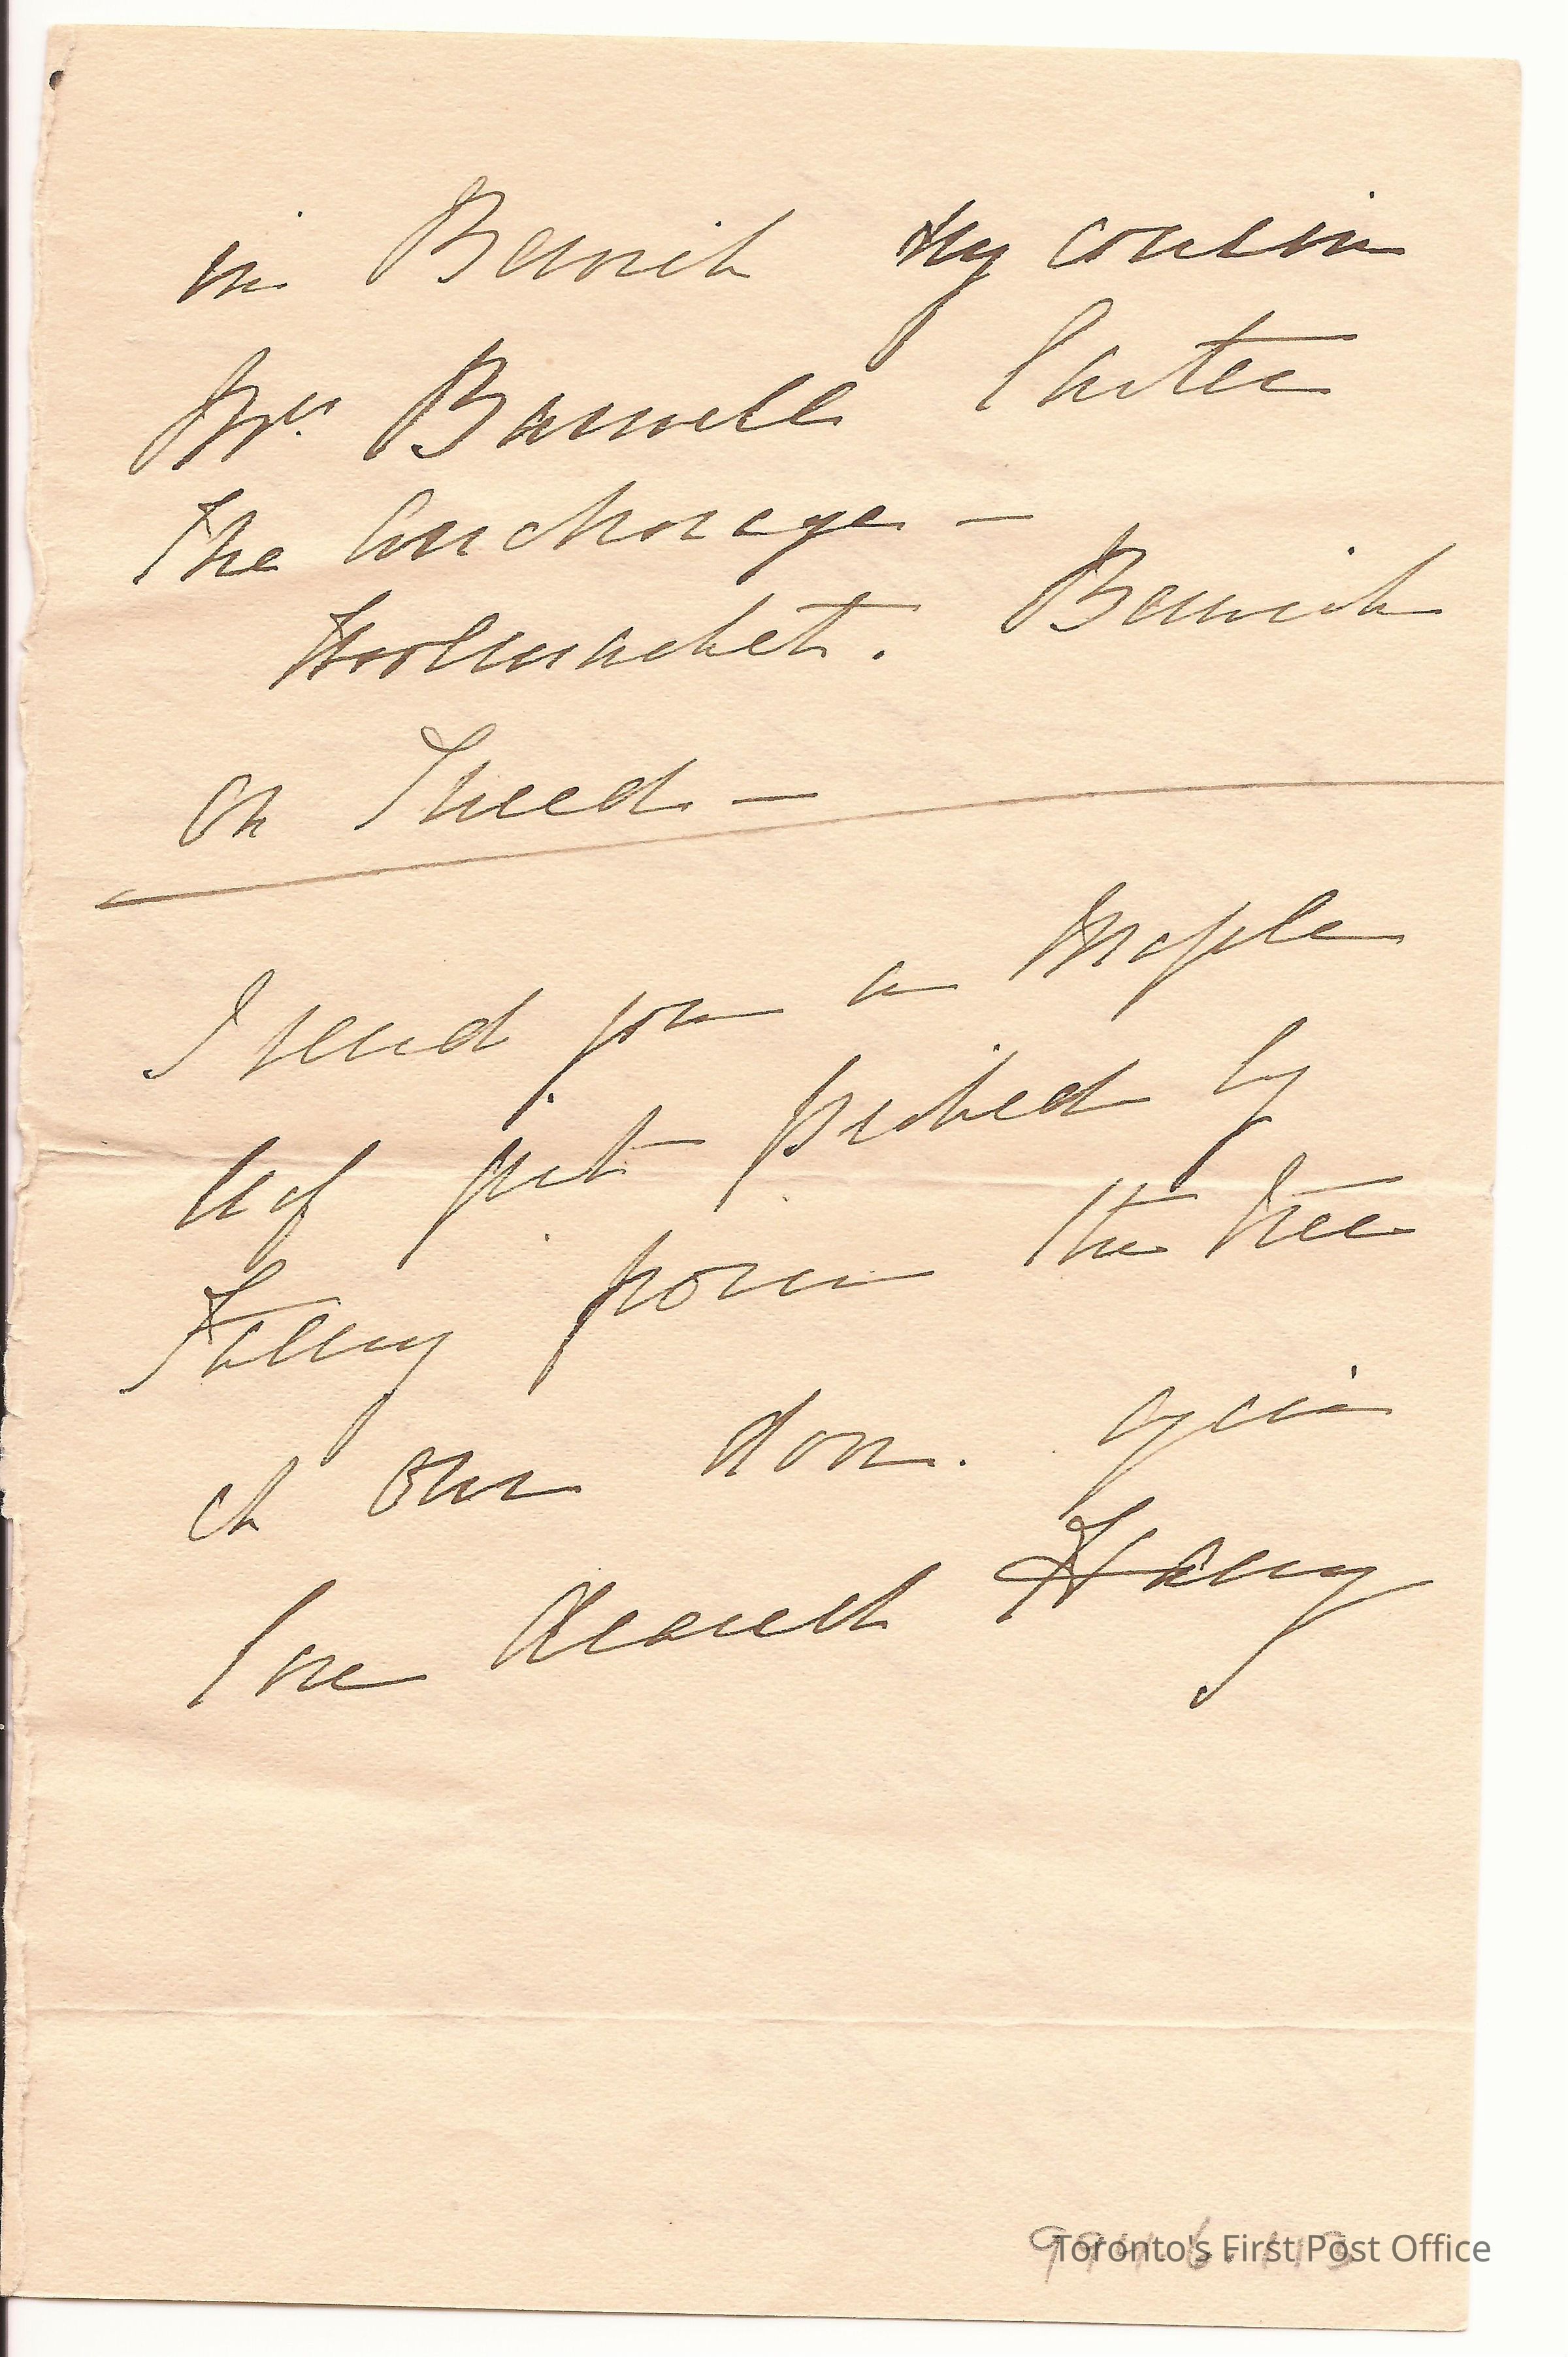 in Berwick my cousin
Mrs. Barwell Carter
The Anchorage —
Woolmarket. Berwick
on Tweed —
I send you a Maple
leaf just picked by
from the tree
at our door. again
love dearest
994.6.113
Toronto's First Post Office